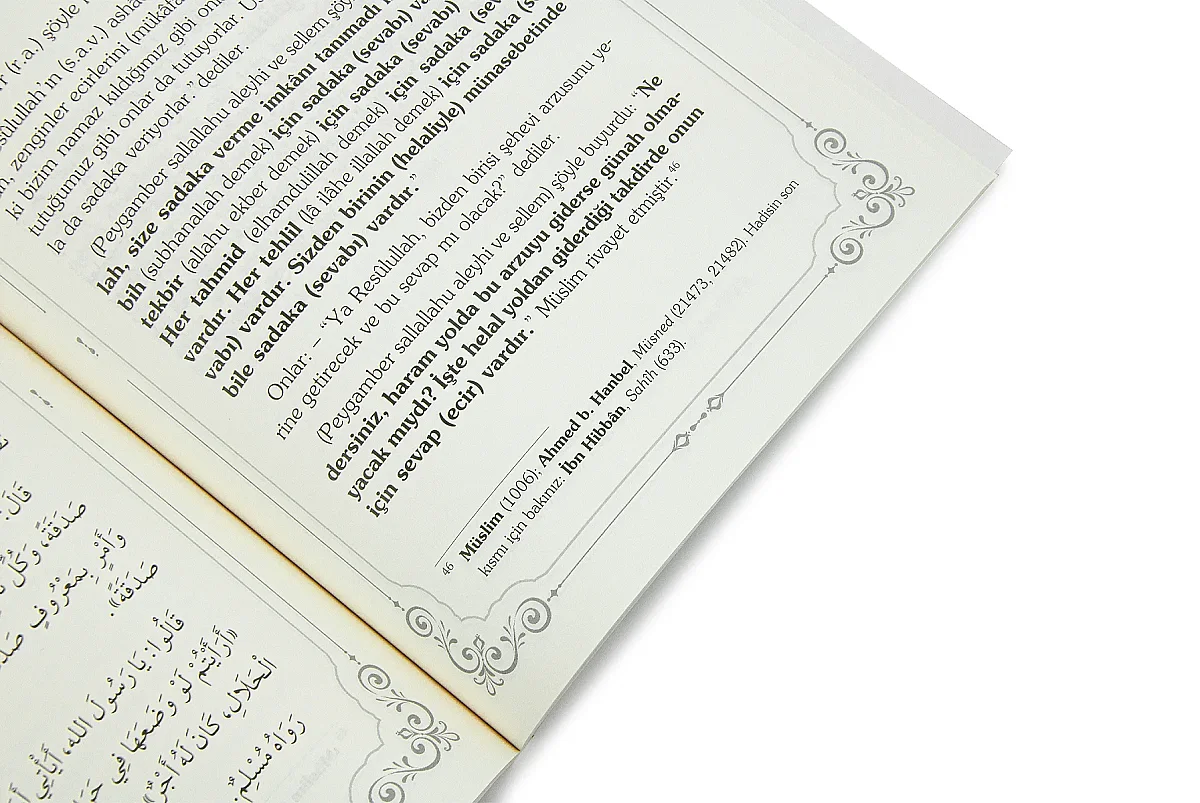 (r.a.) şöyle
sûlullah'ın (s.a.v.) asha
zenginler ecirlerini (mükâfa
ki bizim namaz kıldığımız gibi onl
tutuğumuz gibi onlar da tutuyorlar.
la da sadaka veriyorlar." dediler.
(Peygamber sallallahu aleyhi ve sellem şöy
lah, size sadaka verme imkânı tanımadı
bih (subhanallah demek) için sadaka (sevabı) va
tekbir (allahu ekber demek) için sadaka (sevabı)
Her tahmid (elhamdulillah demek) için sadaka (sev
vardır. Her tehlil (lâ ilâhe illallah demek) için sadaka (s
vabı) vardır. Sizden birinin (helaliyle) münasebetinde
bile sadaka (sevabı) vardır."
Onlar: – "Ya Resûlullah, bizden birisi şehevi arzusunu ye-
rine getirecek ve bu sevap mı olacak?" dediler.
(Peygamber sallallahu aleyhi ve sellem) şöyle buyurdu: "Ne
dersiniz, haram yolda bu arzuyu giderse günah olma-
yacak mıydı? İşte helal yoldan giderdiği takdirde onun
için sevap (ecir) vardır." Müslim rivayet etmiştir.46
46 Müslim (1006); Ahmed b. Hanbel, Müsned (21473, 21482). Hadisin son
kısmı için bakınız: İbn Hibbân, Sahîh (633).
قَالَ:
صَدَقَةً، وَكُلِّ
وَأَمْرٍ بِمَعْرُوفٍ
صَدَقَةً».
قَالُوا: يَا رَسُولَ الله، أَيَأْتِي
«أَرَأَيْتُمْ لَوْ وَضَعَهَا فِي
الْحَلَالِ، كَانَ لَهُ أَجْرٌ»
رَوَاهُ مُسْلِمٌ.